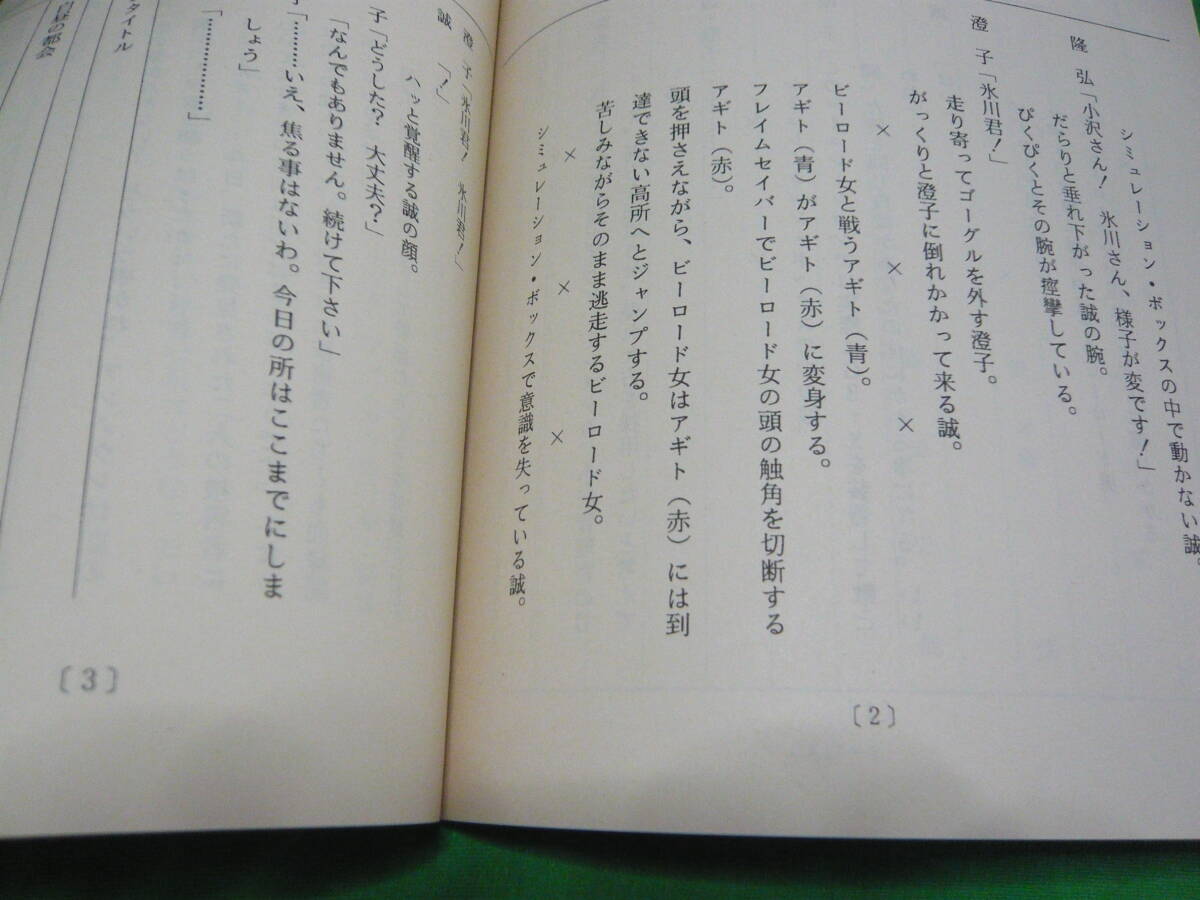 シミュレーション・ボックスの中で動かない誠。
隆弘「小沢さん！　氷川さん、様子が変です！」
だらりと垂れ下がった誠の腕。
ぴくぴくとその腕が痙攣している。
澄子「氷川君！」
走り寄ってゴーグルを外す澄子。
がっくりと澄子に倒れかかって来る誠。
×　×　×
ビーロード女と戦うアギト（青）。
アギト（青）がアギト（赤）に変身する。
フレイムセイバーでビーロード女の頭の触角を切断する
アギト（赤）。
頭を押さえながら、ビーロード女はアギト（赤）には到
達できない高所へとジャンプする。
苦しみながらそのまま逃走するビーロード女。
×　×　×
シミュレーション・ボックスで意識を失っている誠。
〔2〕
澄子「氷川君！　氷川君！」
誠「！」
ハッと覚醒する誠の顔。
子「どうした？　大丈夫？」
「なんでもありません。続けて下さい」
子「………いえ、焦る事はないわ。今日の所はここまでにしま
しょう」
「………………」
タイトル
白昼の都会
〔3〕